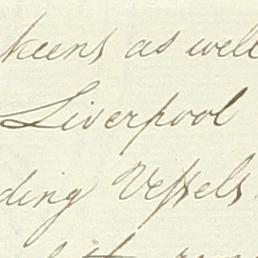 keens as well
Liverpool
ding Veſsels